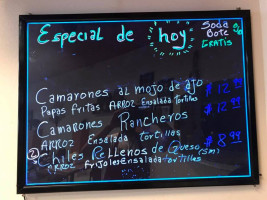 Especial de hoy
Soda
Bote
GRATIS
Camarones al mojo de ajo
Papas fritas ARROZ Ensalada Tortillas $12.99
Camarones Rancheros $12.99
ARROZ Ensalada tortillas
(2) Chiles Rellenos de Queso (sm) $8.99
ARROZ FrijolesEnsalada tortillas